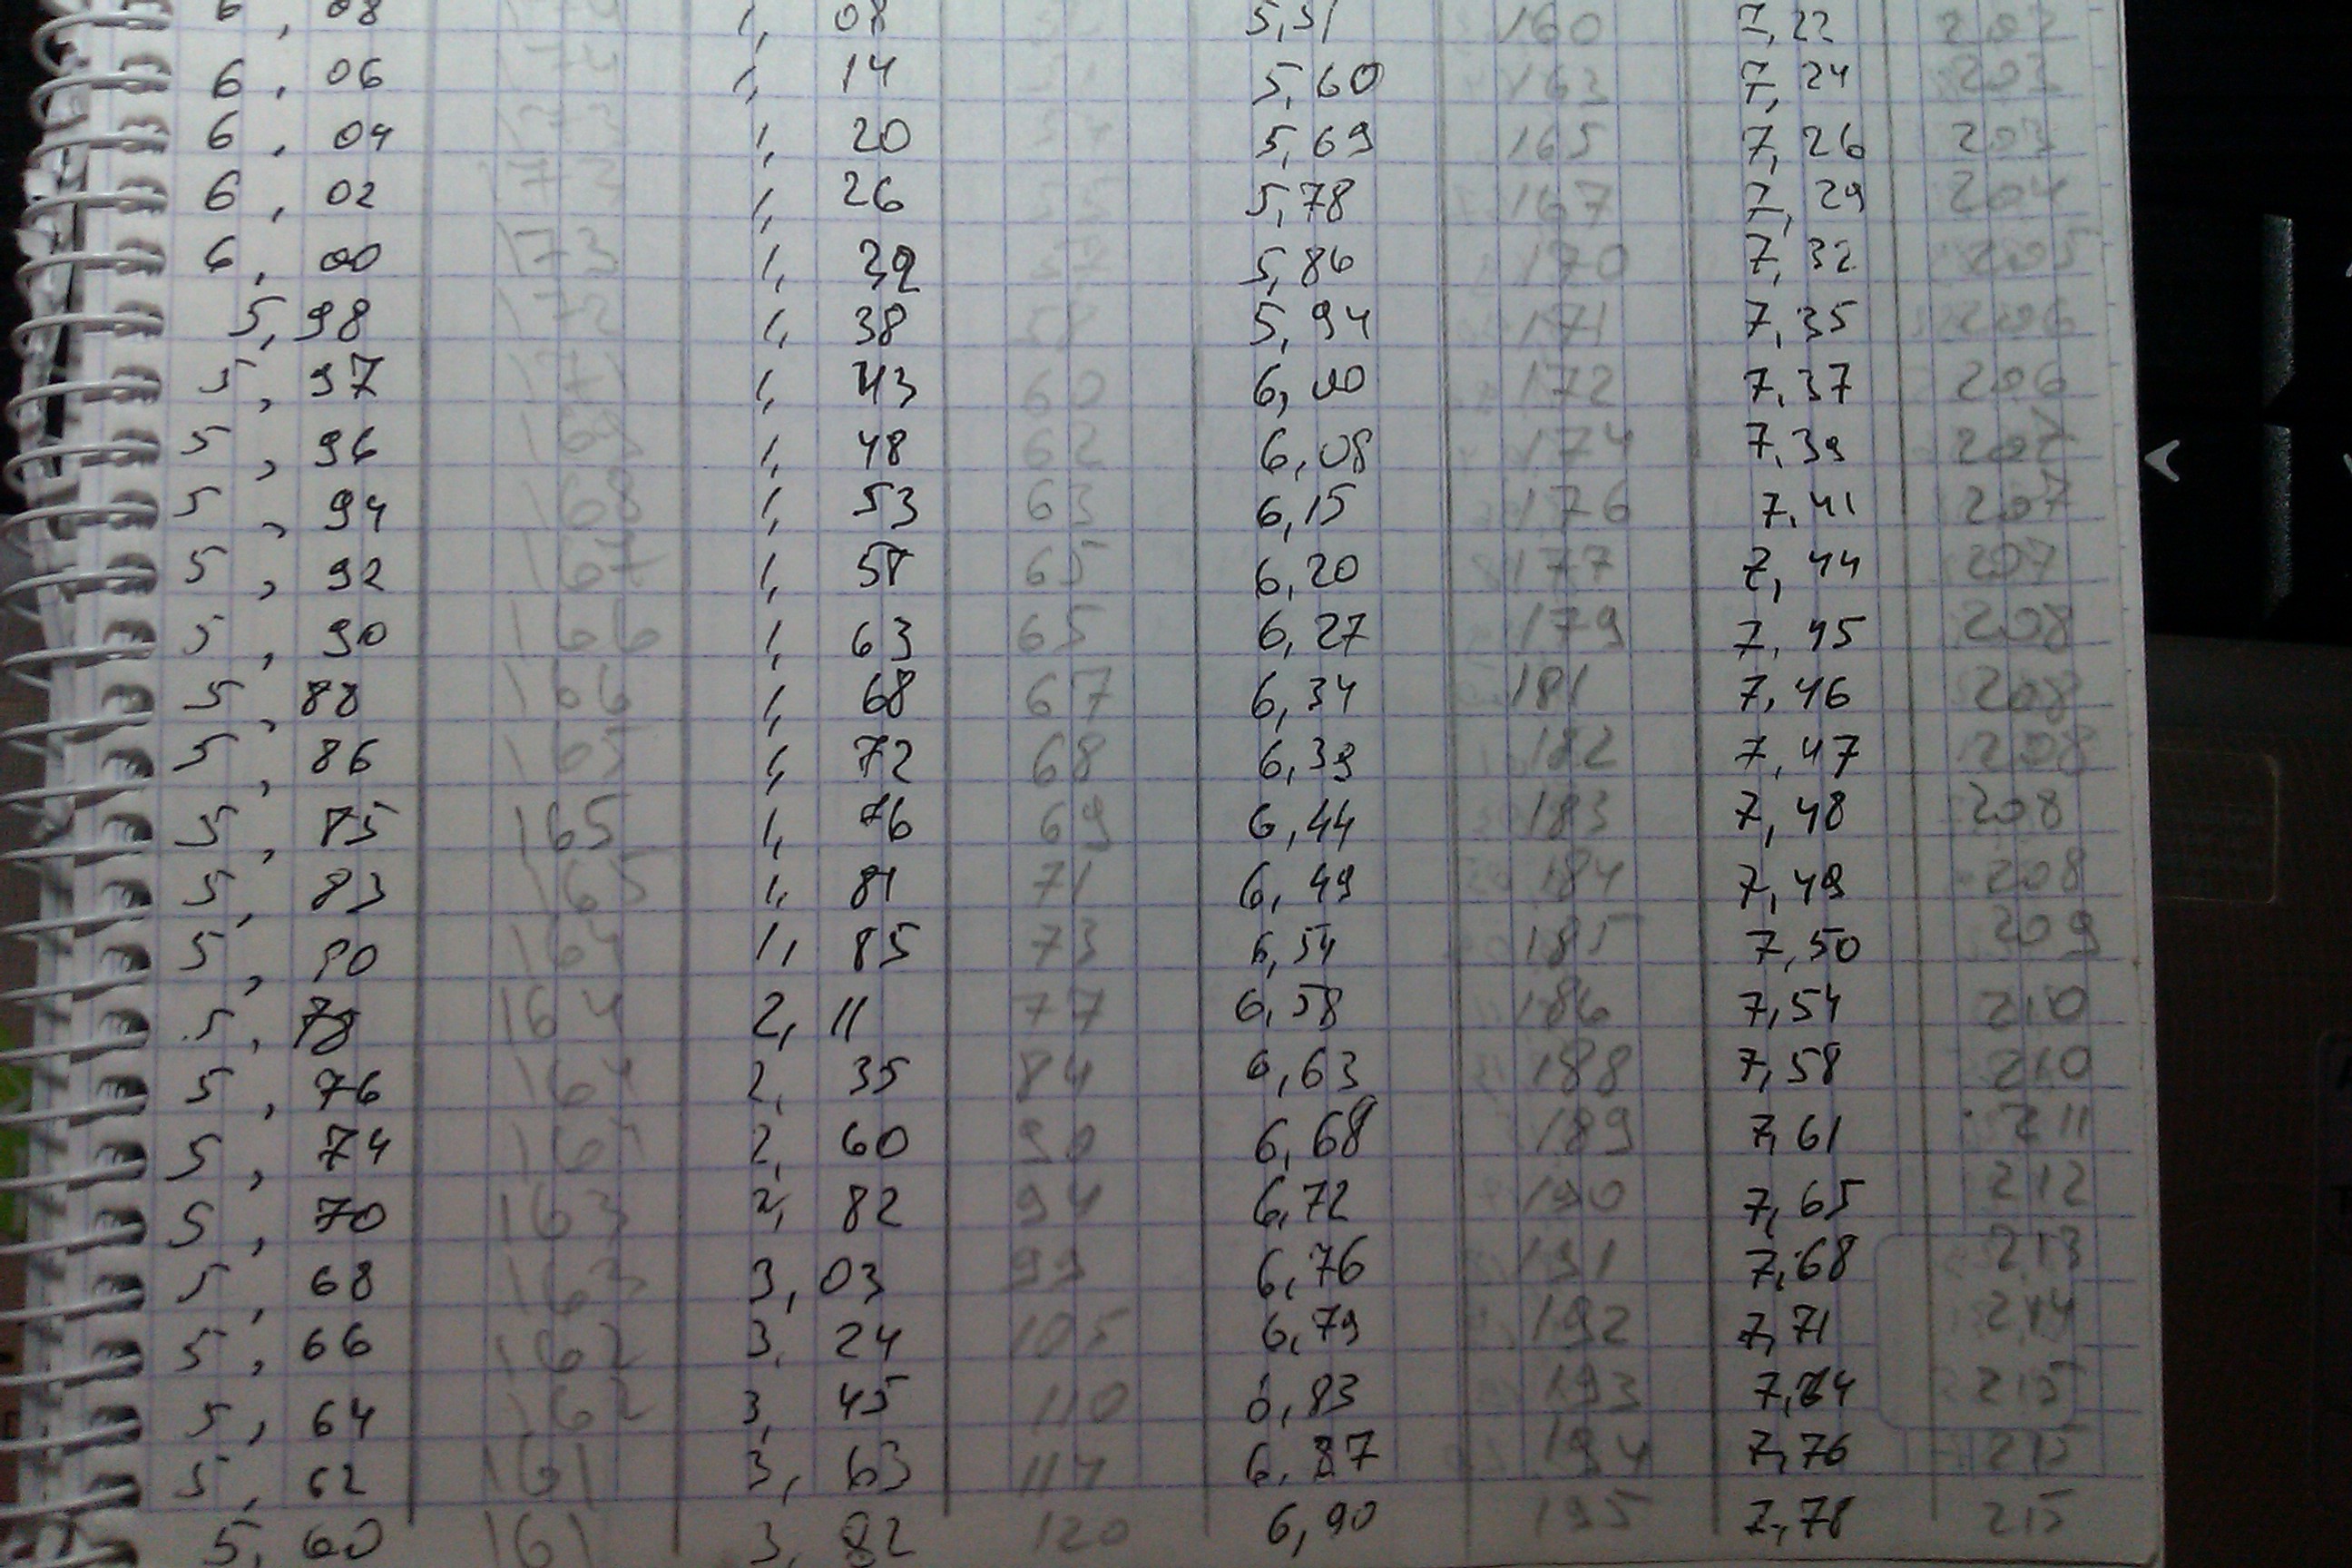 6, 08 1, 08 5,51 160 7,22 203
6, 06 1, 14 5,60 163 7,24 203
6, 04 1, 20 5,69 165 7,26 203
6, 02 173 1, 26 5,78 167 7,29 204
6, 00 173 1, 32 5,86 170 7,32 205
5,98 172 1, 38 5,94 171 7,35 206
5, 97 171 1, 43 60 6,00 172 7,37 206
5, 96 169 1, 48 62 6,08 174 7,39
5, 94 168 1, 53 63 6,15 176 7,41 207
5, 92 167 1, 58 65 6,20 177 7,44 207
5, 90 166 1, 63 65 6,27 179 7,45 208
5, 88 166 1, 68 67 6,34 181 7,46 208
5, 86 165 1, 72 68 6,39 182 7,47 208
5, 85 165 1, 76 69 6,44 183 7,48 208
5, 83 165 1, 81 71 6,49 184 7,49 208
5, 80 164 1, 85 73 6,54 185 7,50 209
5, 78 164 2, 11 77 6,58 186 7,54 210
5, 76 164 2, 35 84 6,63 188 7,58 210
5, 74 164 2, 60 90 6,68 189 7,61 211
5, 70 163 2, 82 94 6,72 190 7,65 212
5, 68 163 3, 03 99 6,76 191 7,68 213
5, 66 162 3, 24 105 6,79 192 7,71 214
5, 64 162 3, 45 110 6,83 193 7,74 215
5, 62 161 3, 63 117 6,87 194 7,76 215
5, 60 161 3, 82 120 6,90 195 7,78 215